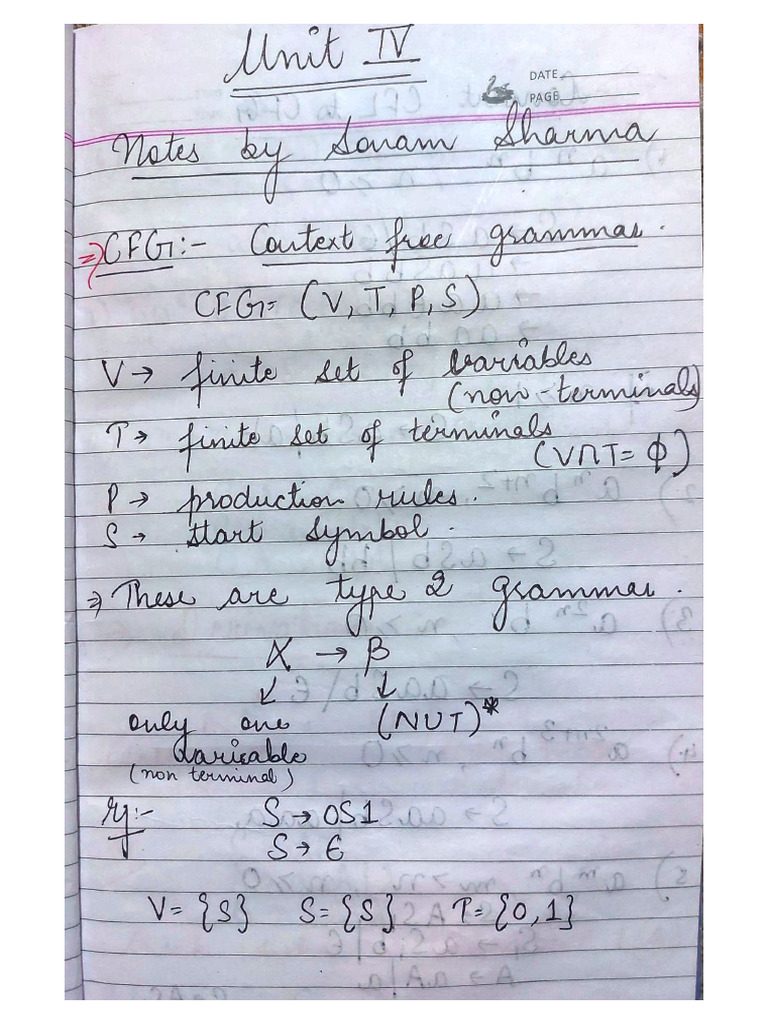 Unit IV
DATE
PAGE
Notes by Sonam Sharma
⇒ CFG:- Context free grammar.
CFG= (V, T, P, S)
V → finite set of variables
(non-terminals)
T → finite set of terminals
(V∩T= ϕ)
P → production rules.
S → start symbol.
⇒ These are type 2 grammar.
α → β
↙ ↓
only one (NUT)*
variable
(non terminal)
Eg:- S → 0S1
S → ε
V= {S} S= {S} T= {0, 1}